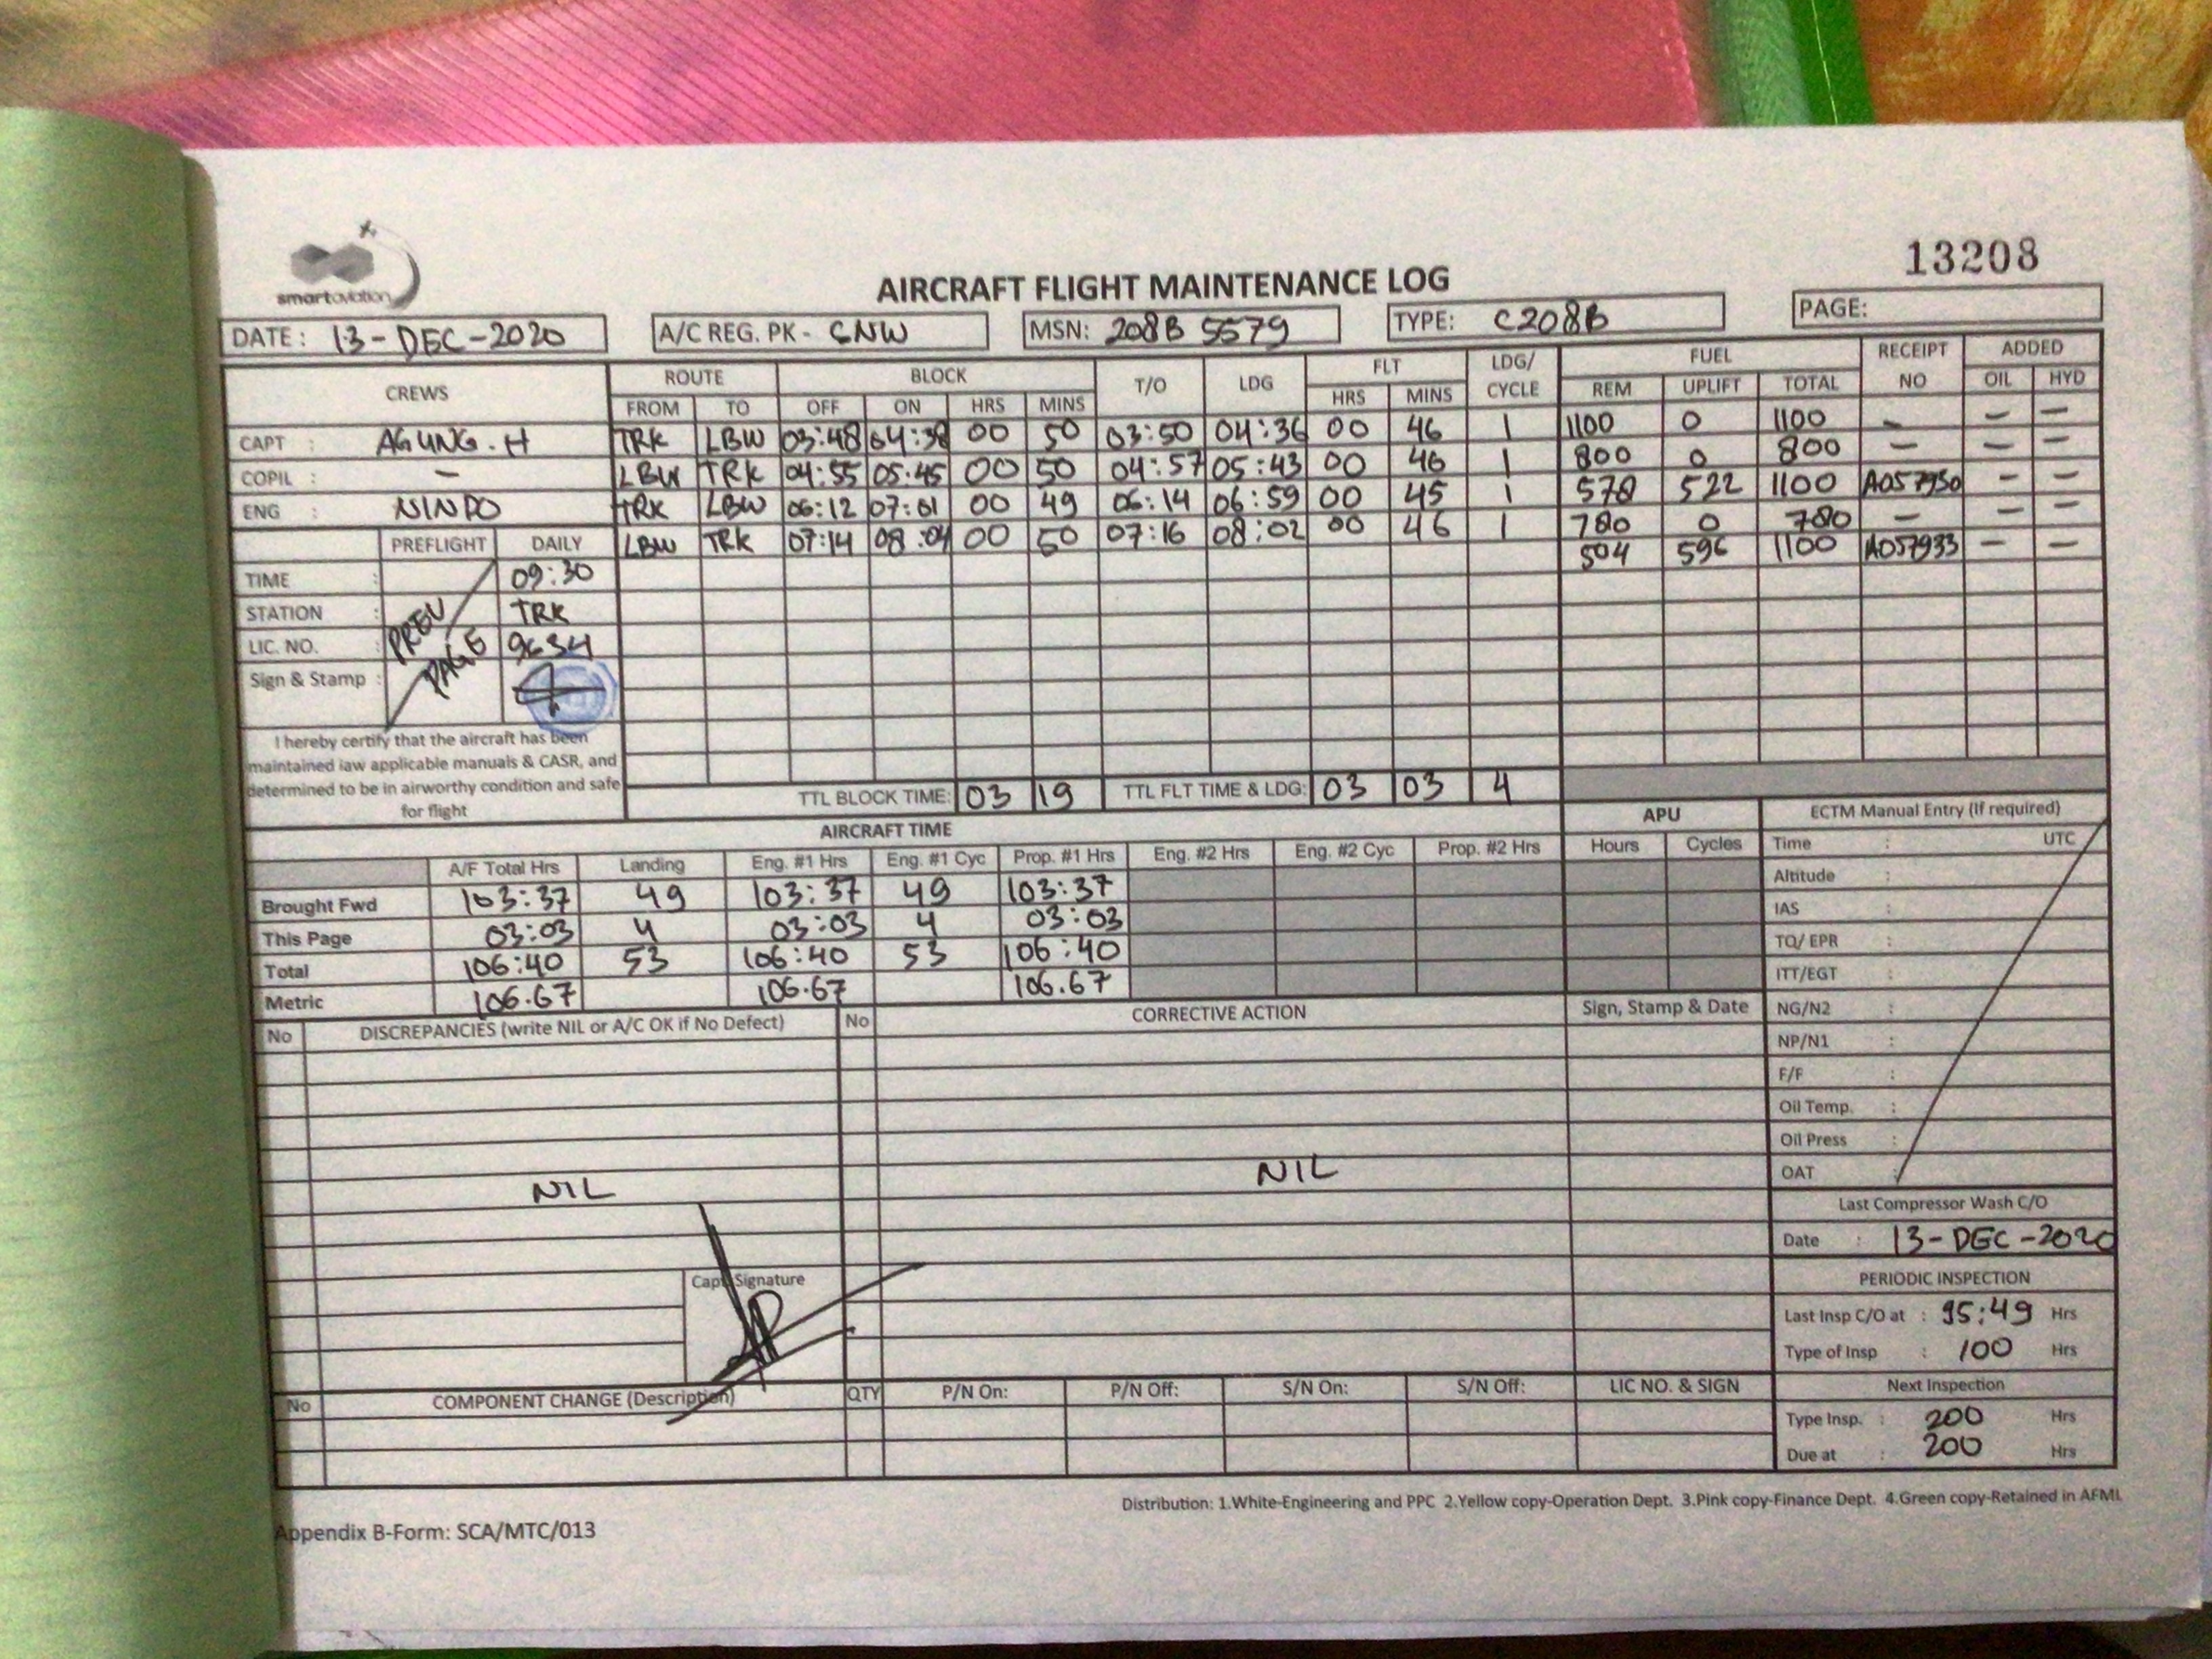 smartaviation
13208
AIRCRAFT FLIGHT MAINTENANCE LOG
DATE : 13-DEC-2020 A/C REG. PK - SNW MSN: 208B 5579 TYPE: C208B PAGE:
CREWS ROUTE BLOCK T/O LDG FLT LDG/ CYCLE FUEL RECEIPT NO ADDED
FROM TO OFF ON HRS MINS HRS MINS REM UPLIFT TOTAL OIL HYD
CAPT : AGUNG.H TRK LBW 03:48 04:38 00 50 03:50 04:36 00 46 1 1100 0 1100 - - -
COPIL : - LBW TRK 04:55 05:45 00 50 04:57 05:43 00 46 1 800 0 800 - - -
ENG : NINDO TRK LBW 06:12 07:01 00 49 06:14 06:59 00 45 1 578 522 1100 A057930 - -
PREFLIGHT DAILY LBW TRK 07:14 08:04 00 50 07:16 08:02 00 46 1 780 0 780 - - -
504 596 1100 A057933 - -
TIME : 09:30
STATION : TRK
LIC. NO. : 9634
Sign & Stamp :
PREV
PAGE
I hereby certify that the aircraft has been
maintained iaw applicable manuals & CASR, and
determined to be in airworthy condition and safe
for flight
TTL BLOCK TIME: 03 19 TTL FLT TIME & LDG: 03 03 4
AIRCRAFT TIME APU
A/F Total Hrs Landing Eng. #1 Hrs Eng. #1 Cyc Prop. #1 Hrs Eng. #2 Hrs Eng. #2 Cyc Prop. #2 Hrs Hours Cycles
Brought Fwd 103:37 49 103:37 49 103:37
This Page 03:03 4 03:03 4 03:03
Total 106:40 53 106:40 53 106:40
Metric 106.67 106.67 106.67
ECTM Manual Entry (If required)
Time : UTC
Altitude :
IAS :
TQ/ EPR :
ITT/EGT :
NG/N2 :
NP/N1 :
F/F :
Oil Temp. :
Oil Press :
OAT :
No DISCREPANCIES (write NIL or A/C OK if No Defect) No CORRECTIVE ACTION Sign, Stamp & Date
NIL NIL
Capt Signature
Last Compressor Wash C/O
Date : 13-DEC-2020
PERIODIC INSPECTION
Last Insp C/O at : 95:49 Hrs
Type of Insp : 100 Hrs
Next Inspection
Type Insp. : 200 Hrs
Due at : 200 Hrs
No COMPONENT CHANGE (Description) QTY P/N On: P/N Off: S/N On: S/N Off: LIC NO. & SIGN
Distribution: 1.White-Engineering and PPC 2.Yellow copy-Operation Dept. 3.Pink copy-Finance Dept. 4.Green copy-Retained in AFML
Appendix B-Form: SCA/MTC/013